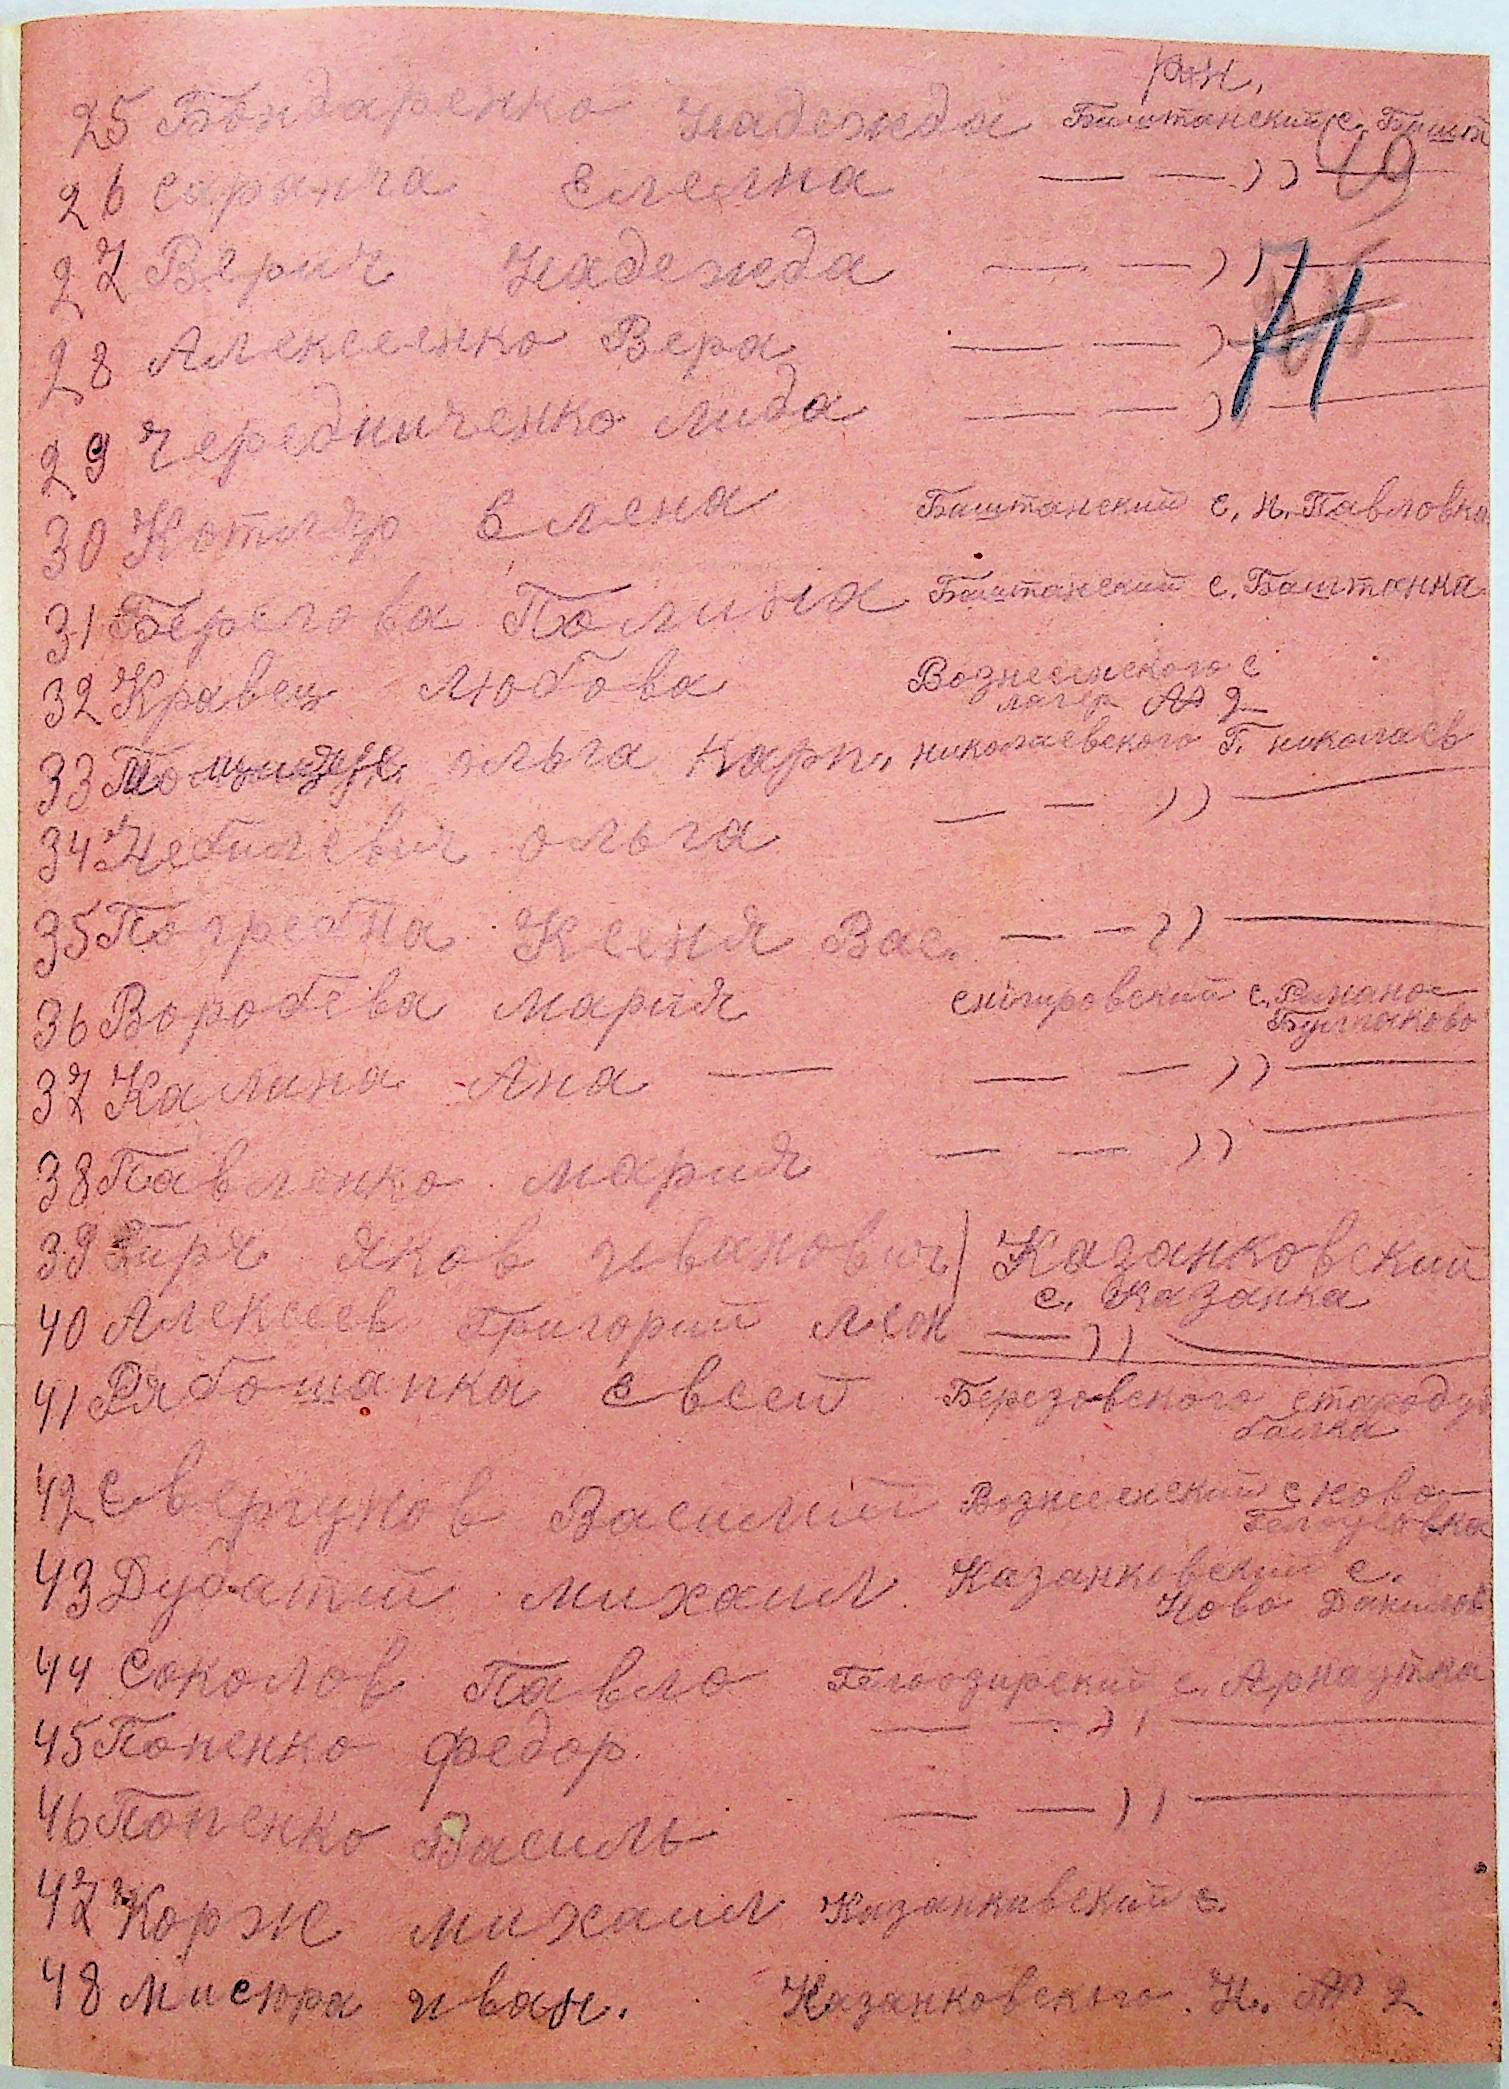 рин.
25 Бондаренко Надежда Баштанский с. Башт
19
26 Сарынча Елена — — )) —
27 Верич Надежда — — )) —
71
28 Алексеенко Вера — — ) —
29 Чередниченко Лида — — ) —
30 Котляр Елена Баштанский с. Н. Павловка
31 Берегова Полина Баштанский с. Баштанка
32 Кравец Любова Вознесенского с
лагер № 2
33 Ольга Карп. Николаевского Г. Николаев
34 Небилевич Ольга — — )) —
35 Погребна Ксеня Вас. — — )) —
36 Воробёва Мария Снігировский с. Романо-
Булгаково
37 Калина Ана — — — )) —
38 Павленко Мария — — )) —
39 Яков Иванович Казанковский
с. Казанка
40 Алексеев Григорий Леон — )) —
41 Рябошапка Евсей Березовского стародуб
балка
42 Свергунов Василий Вознесенский с Ново-
43 Дубатий Михаил Казанковский с.
Ново Данилов
44 Соколов Павло с. Арнаутка
45 Попенко Федор — — )) —
46 Попенко Василь — — )) —
47 Корж Михаил Казанкавский с.
48 Мисюра Иван. Казанковского. Н. № 2